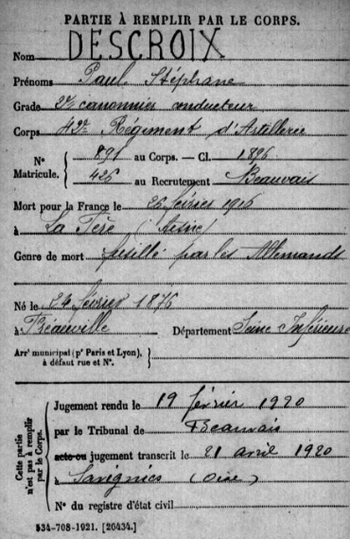 PARTIE À REMPLIR PAR LE CORPS.
Nom DESCROIX
Prénoms Paul Stéphane
Grade 2e canonnier conducteur
Corps 42e Régiment d'Artillerie
N° Matricule. 891 au Corps. — Cl. 1896
426 au Recrutement Beauvais
Mort pour la France le 26 février 1916
à La Fère (Aisne)
Genre de mort fusillé par les Allemands
Né le 24 février 1876
à Département Seine Inférieure
Arrt municipal (pr Paris et Lyon), à défaut rue et N°.
Cette partie n'est pas à remplir par le Corps.
Jugement rendu le 19 février 1920
par le Tribunal de Beauvais
acte ou jugement transcrit le 21 avril 1920
à Savignies (Oise)
N° du registre d'état civil
534-708-1921. [26434.]